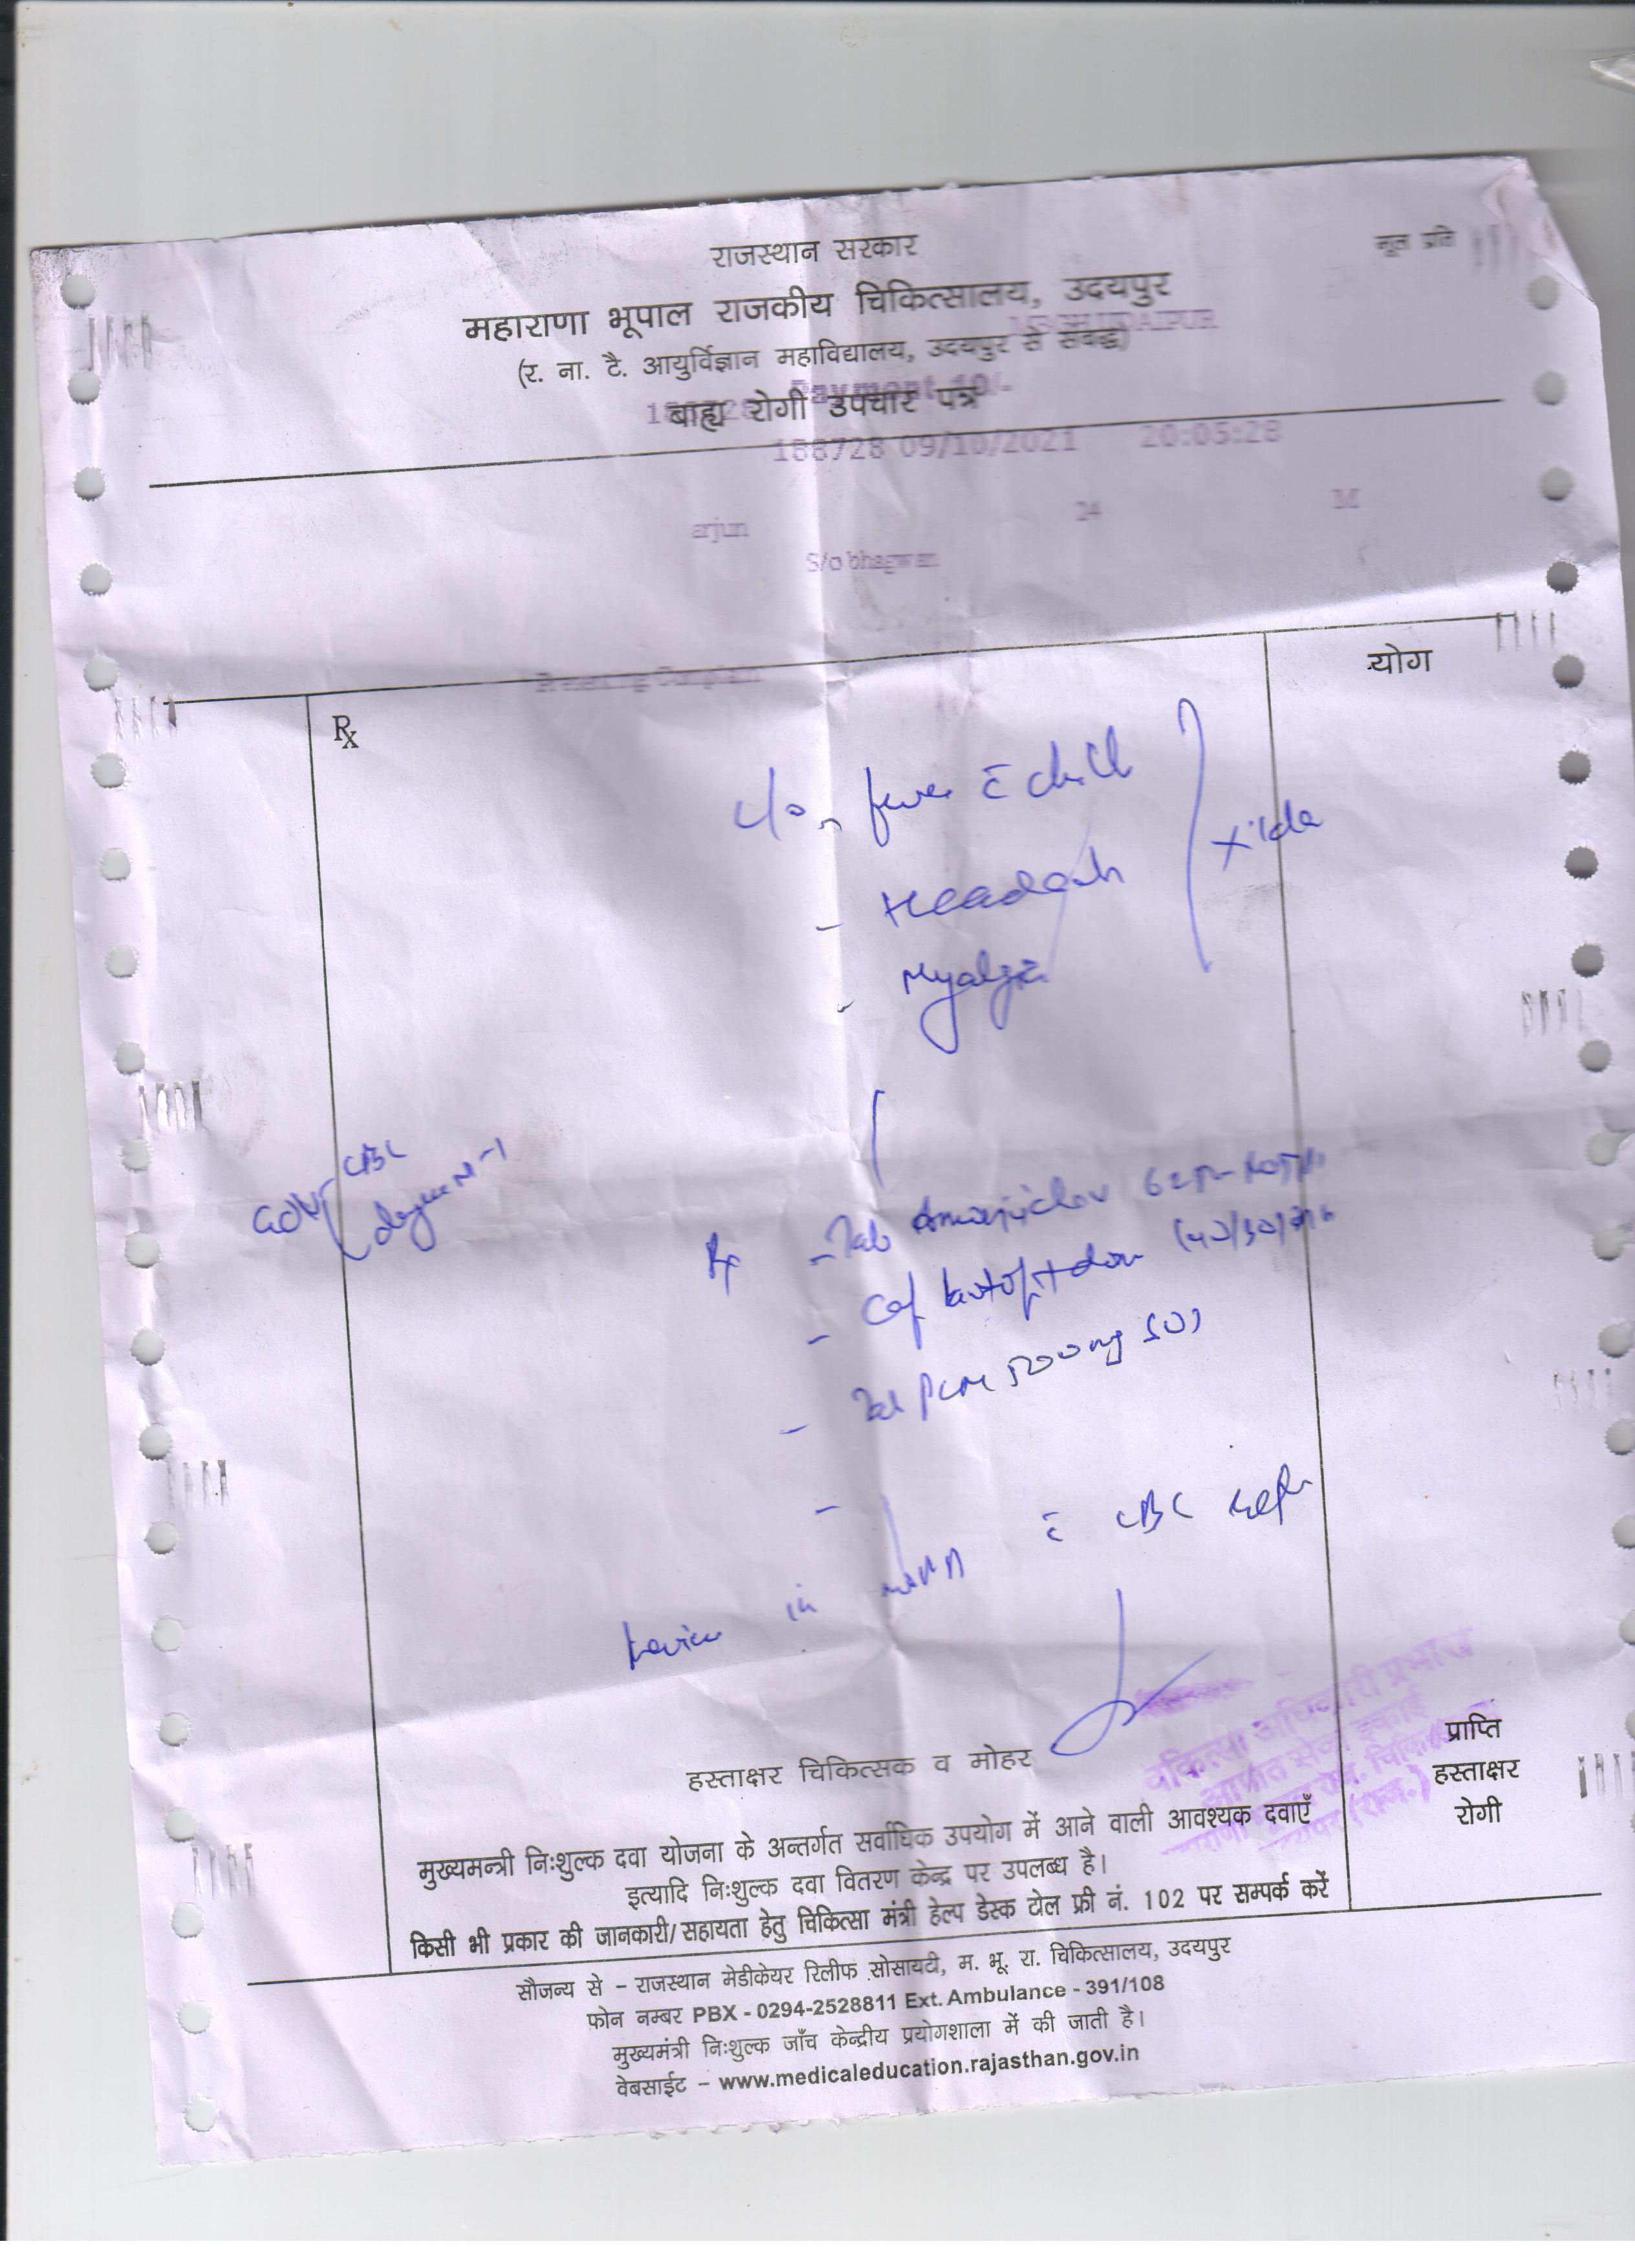 राजस्थान सरकार
मूल प्रति
महाराणा भूपाल राजकीय चिकित्सालय, उदयपुर
(र. ना. टै. आयुर्विज्ञान महाविद्यालय, उदयपुर से संबद्ध)
Payment 10/-
बाह्य रोगी उपचार पत्र
188728 09/10/2021 20:05:28
arjun 24 M
S/o bhagwan
Presenting Complain
योग
Rx
c/o fever c̄ chill
- Headach
- Myalgia
CBC
Adv
Rx - Tab 625
- Cap
- Tab PCM 500mg SOS
-
Review in c̄ CBC
हस्ताक्षर चिकित्सक व मोहर
प्राप्ति
हस्ताक्षर
रोगी
मुख्यमन्त्री निःशुल्क दवा योजना के अन्तर्गत सर्वाधिक उपयोग में आने वाली आवश्यक दवाएँ
इत्यादि निःशुल्क दवा वितरण केन्द्र पर उपलब्ध है।
किसी भी प्रकार की जानकारी/सहायता हेतु चिकित्सा मंत्री हेल्प डेस्क टोल फ्री नं. 102 पर सम्पर्क करें
सौजन्य से – राजस्थान मेडीकेयर रिलीफ सोसायटी, म. भू. रा. चिकित्सालय, उदयपुर
फोन नम्बर PBX - 0294-2528811 Ext. Ambulance - 391/108
मुख्यमंत्री निःशुल्क जाँच केन्द्रीय प्रयोगशाला में की जाती है।
वेबसाईट – www.medicaleducation.rajasthan.gov.in